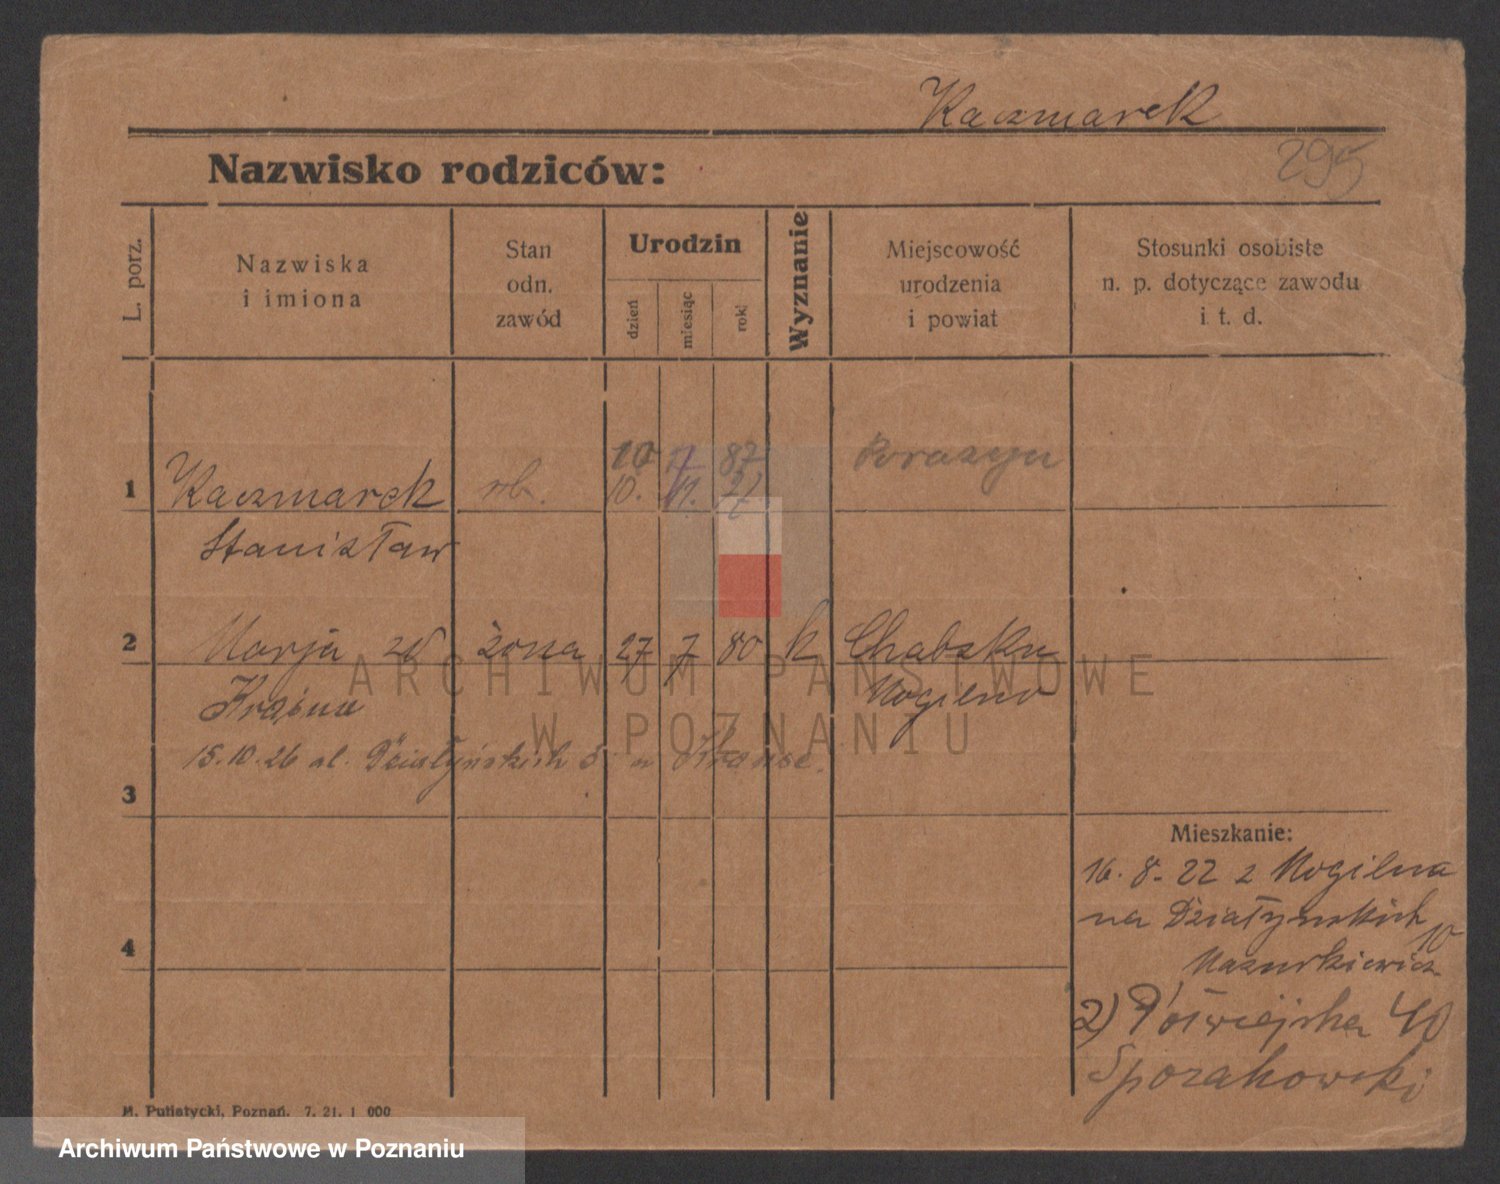 Kaczmarek
295
Nazwisko rodziców:
L. porz.
Nazwiska
i imiona
Stan
odn.
zawód
Urodzin
dzień
miesiąc
rok
Wyznanie
Miejscowość
urodzenia
i powiat
Stosunki osobiste
n. p. dotyczące zawodu
i t. d.
10 87
1 Kaczmarek rb. 10. 11.
Stanisław
2 Marja zd żona 27 7 80 k Chabsku
Mogilno
15.10.26 ul. Działyńskich 5
3
Mieszkanie:
16. 8. 22 z Mogilna
na Działyńskich
10
Mazurkiewicz
4
2) Półwiejska 40
M. Putiatycki, Poznań. 7. 21. 1 000
ARCHIWUM PAŃSTWOWE
W POZNANIU
Archiwum Państwowe w Poznaniu